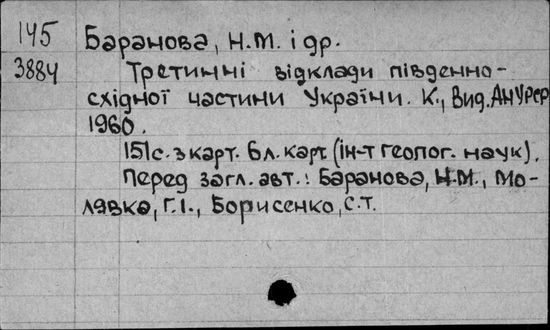 145 Баранова, Н.М. і др.
3884 Третинні відклади південно-
східної частини України. К., Вид. АН УРСР
1960.
151с. з карт. 6 л. карт (ін-т геолог. наук).
Перед загл. авт.: Баранова, Н.М., Мо-
лявко, Г.І., Борисенко, С.Т.